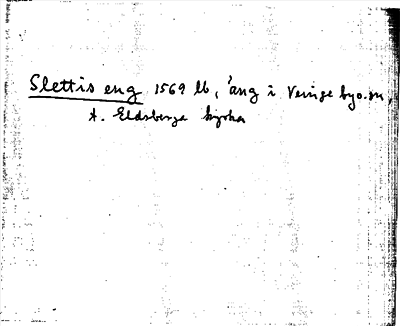 Slettis eng 1569 lb, äng i Veinge by o. sn,
t. Eldsberga kyrka